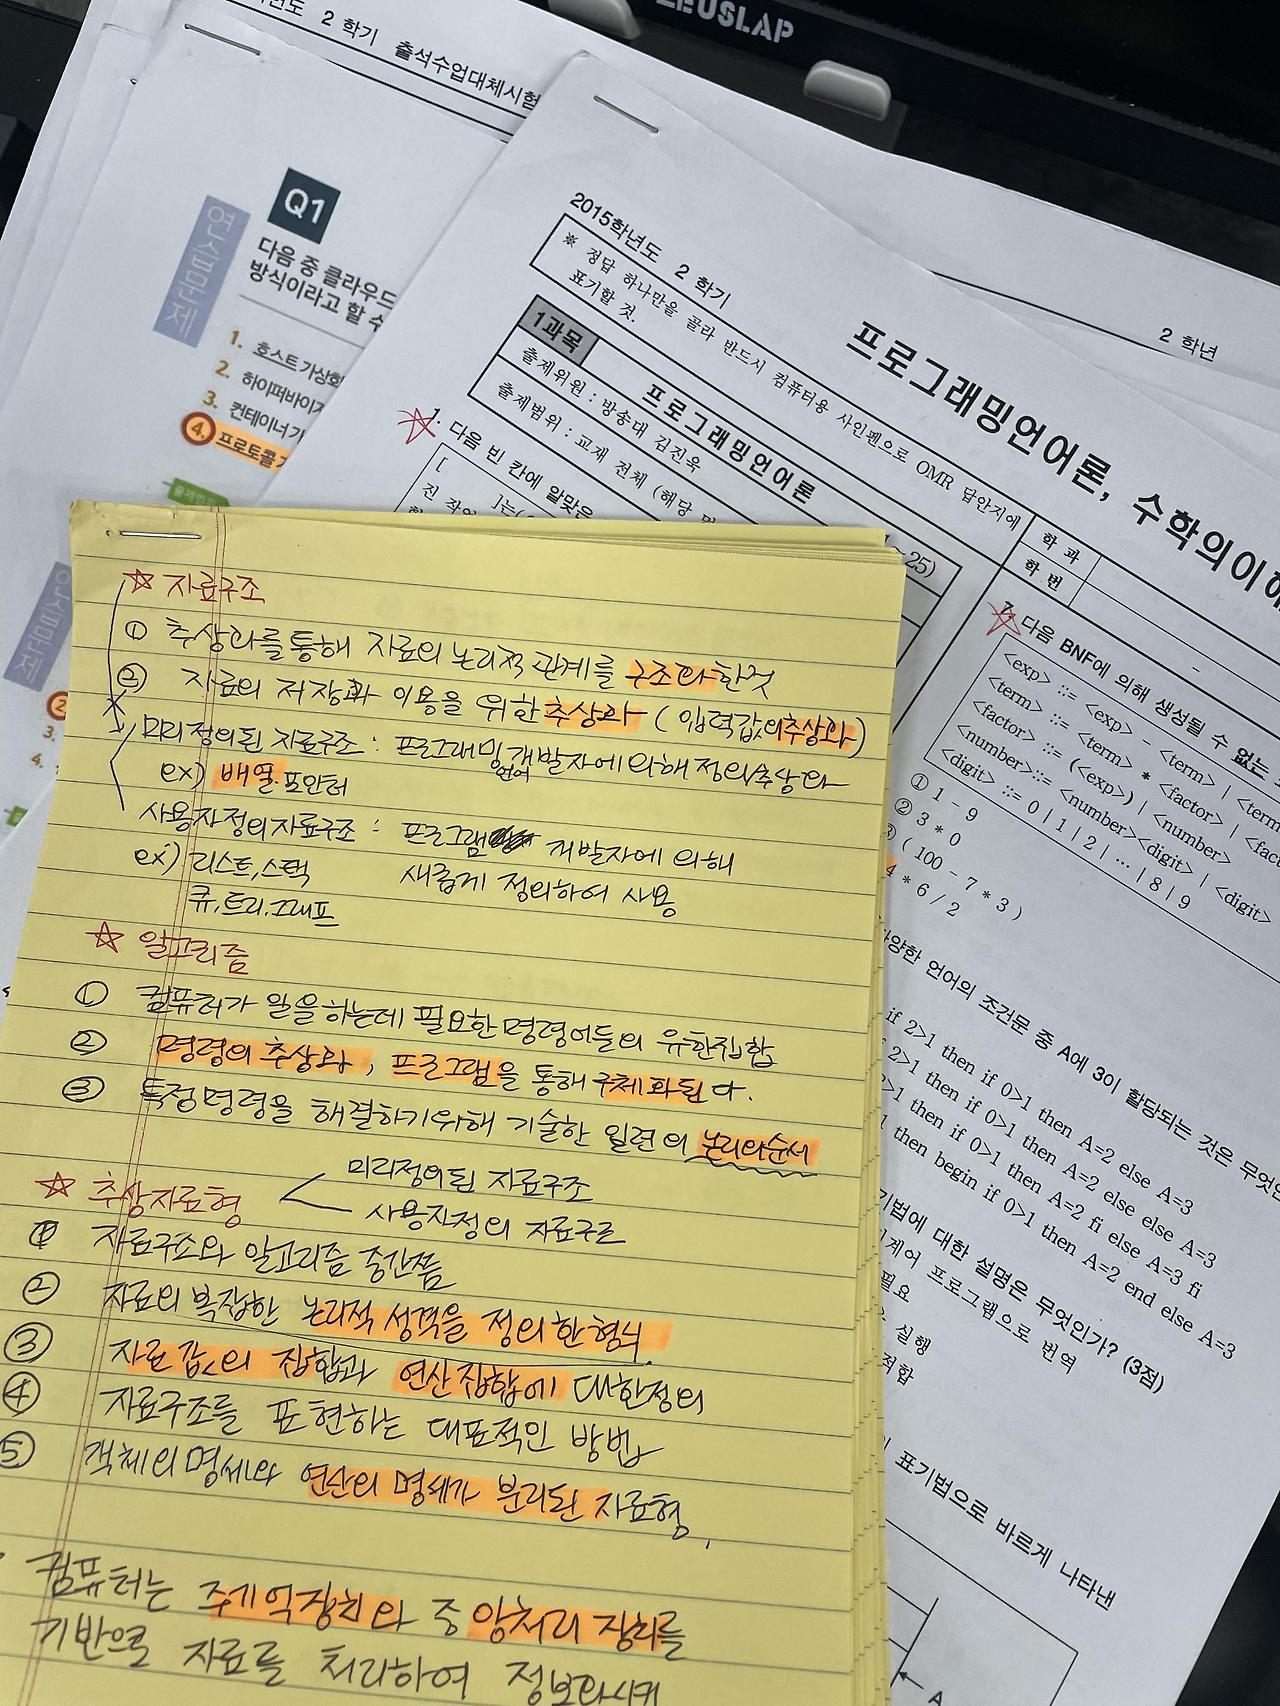 ZEUSLAP
2 학기 출석수업대체시험
Q1
연습문제
다음 중 클라우드
방식이라고 할 수
1. 호스트 가상화
2. 하이퍼바이저
3. 컨테이너 가
4. 프로토콜
연습문제
2
3.
4.
2015학년도 2 학기
프로그래밍언어론, 수학의이해
2 학년
※ 정답 하나만을 골라 반드시 컴퓨터용 사인펜으로 OMR 답안지에
표기할 것.
학 과
학 번
1과목
프로그래밍언어론
출제위원 : 방송대 김진욱
출제범위 : 교재 전체 (해당
~25)
1. 다음 빈 칸에 알맞은
[
]는(
7. 다음 BNF에 의해 생성될 수 없는
<exp> ::= <exp> - <term> | <term>
<term> ::= <term> * <factor> | <fac
<factor> ::= (<exp>) | <number>
<number>::= <number><digit> | <digit>
<digit> ::= 0 | 1 | 2 | ... | 8 | 9
① 1 - 9
② 3 * 0
③ ( 100 - 7 * 3 )
4 * 6 / 2
양한 언어의 조건문 중 A에 3이 할당되는 것은 무엇인
if 2>1 then if 0>1 then A=2 else A=3
2>1 then if 0>1 then A=2 else else A=3
>1 then if 0>1 then A=2 fi else A=3 fi
then begin if 0>1 then A=2 end else A=3
기법에 대한 설명은 무엇인가? (3점)
계어 프로그램으로 번역
필요
실행
적합
표기법으로 바르게 나타낸
A
☆ 자료구조
① 추상화를 통해 자료의 논리적 관계를 구조화한것
② 자료의 저장과 이용을 위한 추상화 (입력값의 추상화)
미리 정의된 자료구조 : 프로그래밍 언어 개발자에 의해 정의 추상화
ex) 배열. 포인터
사용자정의자료구조 : 프로그램 개발자에 의해
ex) 리스트, 스택 새롭게 정의하여 사용
큐, 트리, 그래프
☆ 알고리즘
① 컴퓨터가 일을 하는데 필요한 명령어들의 유한집합
② 명령의 추상화, 프로그램을 통해 구체화된다.
③ 특정명령을 해결하기위해 기술한 일련의 논리와순서
☆ 추상자료형 < 미리정의된 자료구조
사용자정의 자료구조
① 자료구조와 알고리즘 중간쯤
② 자료의 복잡한 논리적 성격을 정의한형식.
③ 자료 값의 집합과 연산집합에 대한정의
④ 자료구조를 표현하는 대표적인 방법
⑤ 객체의 명세와 연산의 명세가 분리된 자료형.
컴퓨터는 주기억장치와 중앙처리 장치를
기반으로 자료를 처리하여 정보화시켜